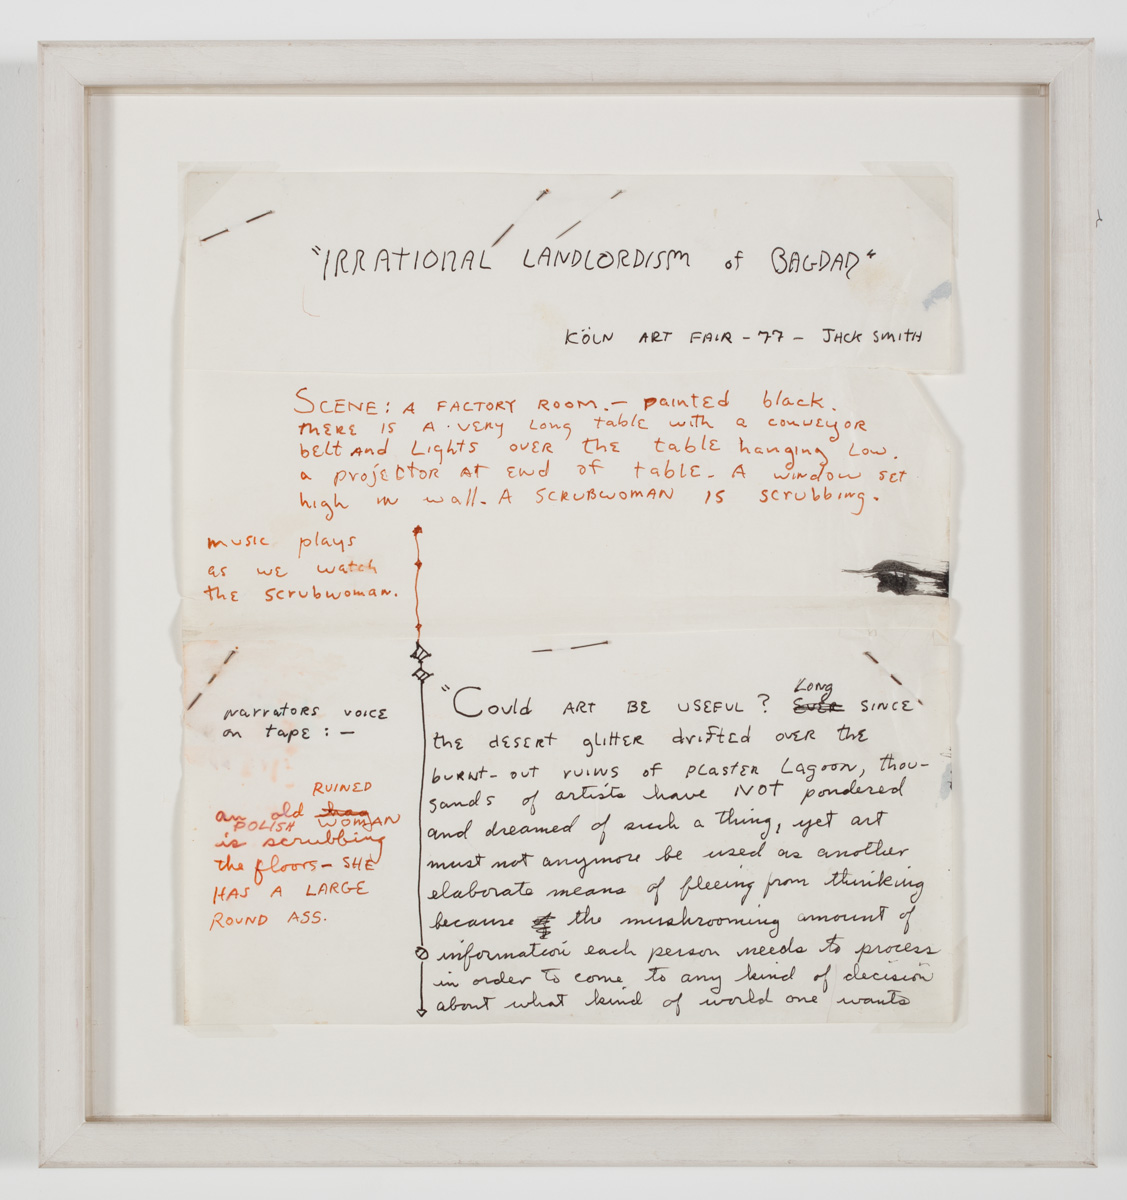 "IRRATIONAL LANDLORDISM of BAGDAD"
KÖLN ART FAIR - 77 - JACK SMITH
SCENE: A FACTORY ROOM. — painted black.
thERE IS A VERY LONG tABLE with a conveyor
belt AND LIGHTS OVER the tABLE hanging LOW.
a projector AT END of tABLE. A window SET
high IN wall. A SCRUBWOMAN IS scrubbing.
music plays
as we watch
the scrubwoman.
narrators voice
on tape: —
"Could ART BE USEFUL? LONG EVER SINCE
the DESERT glitter drifted OVER the
burnt-out ruins of PLASTER LAGOON, thou-
sands of artists have NOT pondered
and dreamed of such a thing, yet art
must not anymore be used as another
elaborate means of fleeing from thinking
because the mushrooming amount of
information each person needs to process
in order to come to any kind of decision
about what kind of world one wants
RUINED
an old hag
POLISH WOMAN
is scrubbing
the floors — SHE
HAS A LARGE
ROUND ASS.